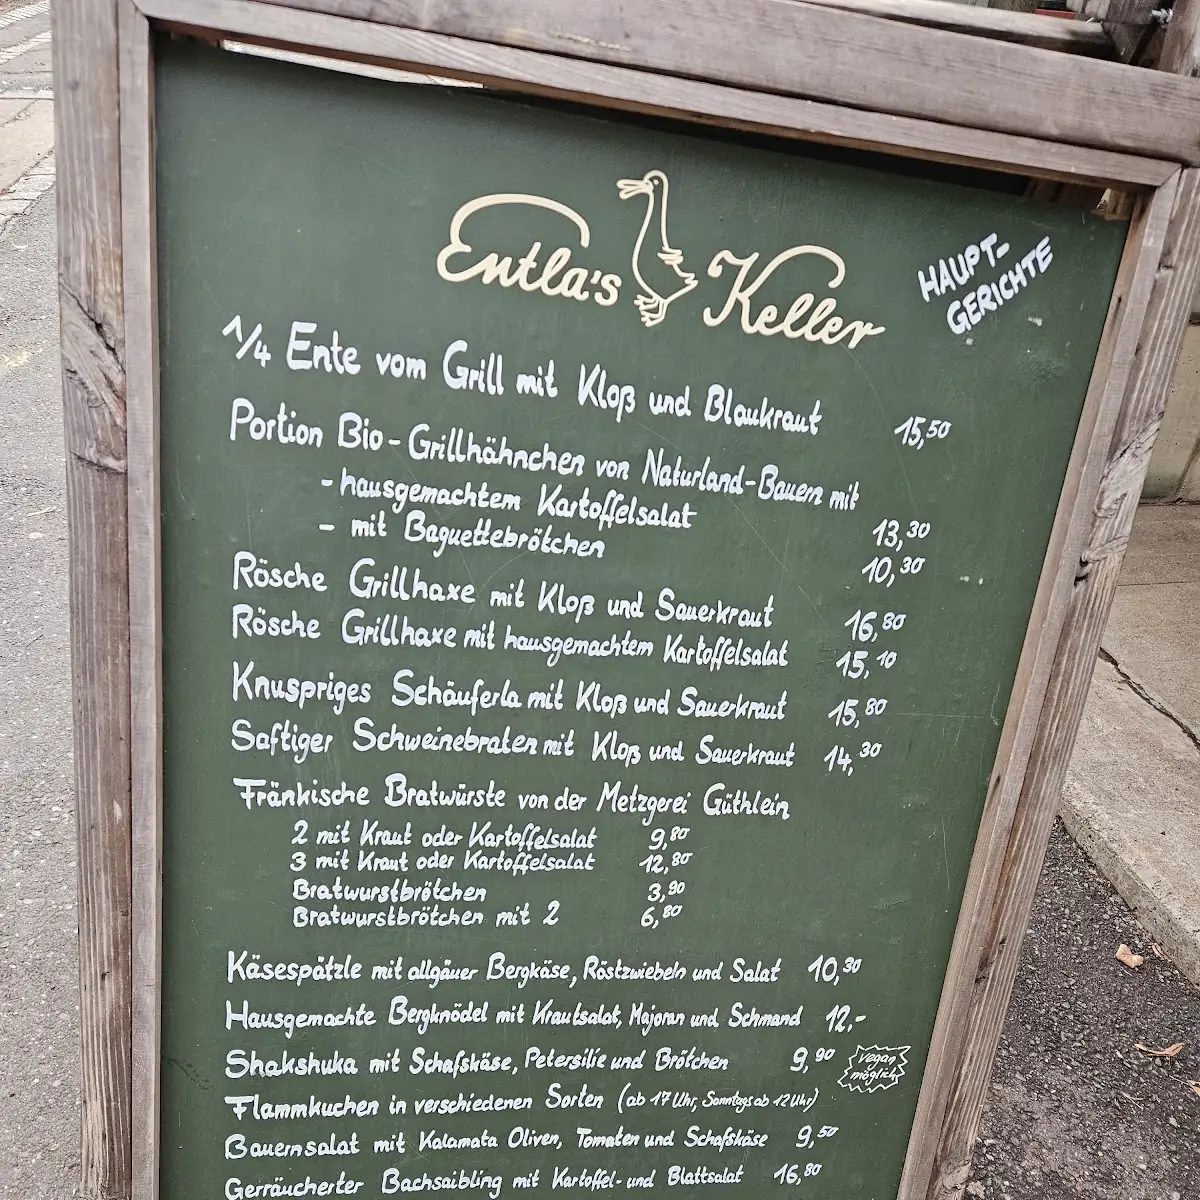 Entla's Keller
HAUPT-
GERICHTE
1/4 Ente vom Grill mit Kloß und Blaukraut 15,50
Portion Bio-Grillhähnchen von Naturland-Bauern mit
- hausgemachtem Kartoffelsalat 13,30
- mit Baguettebrötchen 10,30
Rösche Grillhaxe mit Kloß und Sauerkraut 16,80
Rösche Grillhaxe mit hausgemachtem Kartoffelsalat 15,10
Knuspriges Schäuferla mit Kloß und Sauerkraut 15,80
Saftiger Schweinebraten mit Kloß und Sauerkraut 14,30
Fränkische Bratwürste von der Metzgerei Güthlein
2 mit Kraut oder Kartoffelsalat 9,80
3 mit Kraut oder Kartoffelsalat 12,80
Bratwurstbrötchen 3,90
Bratwurstbrötchen mit 2 6,80
Käsespätzle mit allgäuer Bergkäse, Röstzwiebeln und Salat 10,30
Hausgemachte Bergknödel mit Krautsalat, Majoran und Schmand 12,-
Shakshuka mit Schafskäse, Petersilie und Brötchen 9,90
vegan
möglich
Flammkuchen in verschiedenen Sorten (ab 17 Uhr, Sonntags ab 12 Uhr)
Bauernsalat mit Kalamata Oliven, Tomaten und Schafskäse 9,50
Gerräucherter Bachsaibling mit Kartoffel- und Blattsalat 16,80